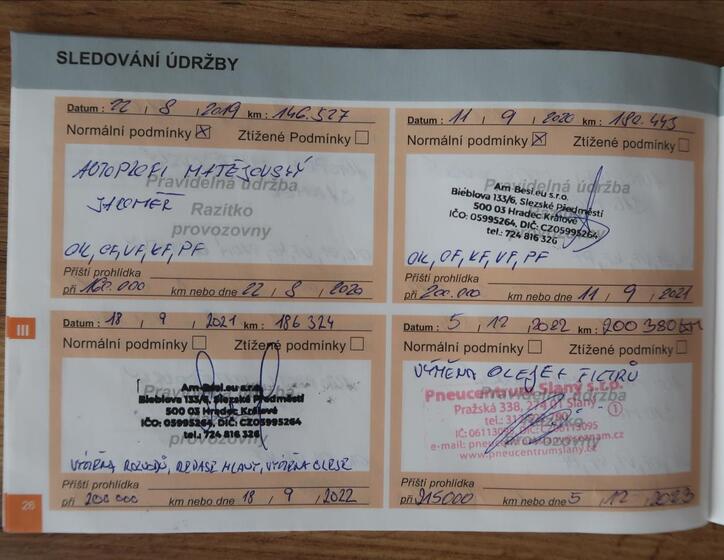 SLEDOVÁNÍ ÚDRŽBY
Datum : 22 / 8 / 2019 km : 146.527
Normální podmínky ☒ Ztížené Podmínky ☐
AUTOPROFI MATĚJOVSKÝ
Pravidelná údržba
JAROMĚŘ
Razítko
provozovny
OK, OF, VF, KF, PF
Příští prohlídka
při 160.000 km nebo dne 22 / 8 / 2020
Datum : 11 / 9 / 2020 km : 180.443
Normální podmínky ☒ Ztížené Podmínky ☐
Am-Besi.eu s.r.o.
Bieblova 133/6, Slezské Předměstí
500 03 Hradec Králové
IČO: 05995264, DIČ: CZ05995264
tel.: 724 816 326
OK, OF, KF, VF, PF
Příští prohlídka
při 200.000 km nebo dne 11 / 9 / 2021
Datum : 18 / 9 / 2021 km : 186 324
Normální podmínky ☐ Ztížené Podmínky ☐
Am-Besi.eu s.r.o.
Bieblova 133/6, Slezské Předměstí
500 03 Hradec Králové
IČO: 05995264, DIČ: CZ05995264
tel.: 724 816 326
provozovny
VÝMĚNA ROZVODŮ, REPASE HLAVY, VÝMĚNA OLEJE
Příští prohlídka
při 200 000 km nebo dne 18 / 9 / 2022
Datum : 5 / 12 / 2022 km : 200 380 km
Normální podmínky ☐ Ztížené Podmínky ☐
VÝMĚNA OLEJE + FILTRŮ
Pneucentrum Slaný s.r.o.
Pražská 338, 274 01 Slaný
IČ: 06113095, DIČ: 06113095
www.pneucentrumslany.cz
Příští prohlídka
při 215000 km nebo dne 5 / 12 / 2023
III
26